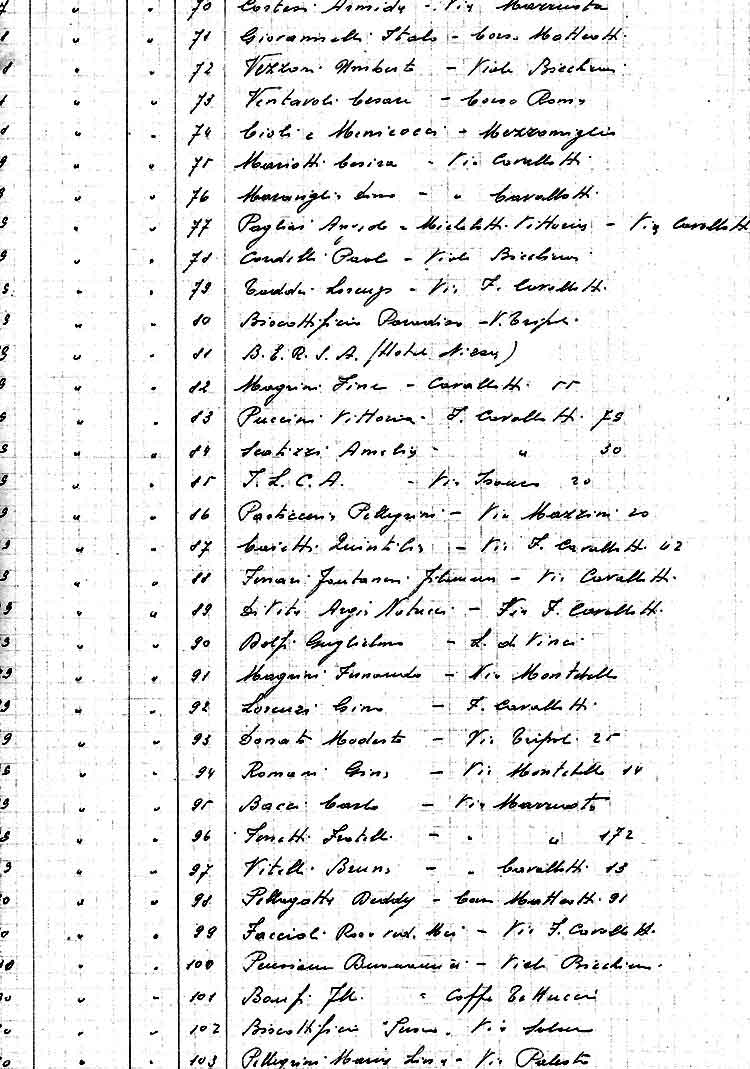 70 Armida - Via Mazzuoto
" " 71 Giovannelli Italo - Corso Matteotti
" " 72 Vezzoni Umberto - Viale Bicchierai
" " 73 Ventavoli Cesare - Corso Roma
" " 74 Cioli e Menicocci - Mezzomiglio
" " 75 Mariotti Cesira - Via Cavallotti
" " 76 Maraviglia Dino - " Cavallotti
" " 77 Pagliai - Michelotti Vittoria - Via Cavallotti
" " 78 Paolo - Viale Bicchierai
" " 79 Taddei Lorenzo - Via F. Cavallotti
" " 80 Biscottificio Paradiso - V. Tripoli
" " 81 B.E.R.S.A. (Hotel )
" " 82 Magrini - Cavallotti 55
" " 83 Puccini Vittoria - F. Cavallotti 79
" " 84 Scatizzi Amelia - " 30
" " 85 - Via Isonzo 20
" " 86 Pasticceria Pellegrini - Via Mazzini 20
" " 87 Quintilia - Via F. Cavallotti 42
" " 88 Fontanini - Via Cavallotti
" " 89 Di Vita Natucci - Via F. Cavallotti
" " 90 Dolfi Guglielmo - L. da Vinci
" " 91 Magrini Fernando - Via Montebello
" " 92 Lorenzi Gino - F. Cavallotti
" " 93 Donati Modesto - Via Tripoli 25
" " 94 Romani Gino - Via Montebello 14
" " 95 Bacci Carlo - Via Mazzuoto
" " 96 Fratelli - " " 172
" " 97 Vitelli Bruno - " Cavallotti 13
" " 98 Deddy - Corso Matteotti 91
" " 99 Faccioli Rosa ved. - Via F. Cavallotti
" " 100 Pensione - Viale Bicchierai
" " 101 - Caffè Tettuccio
" " 102 Biscottificio - Via
" " 103 Pellegrini Maria - Via Palestro